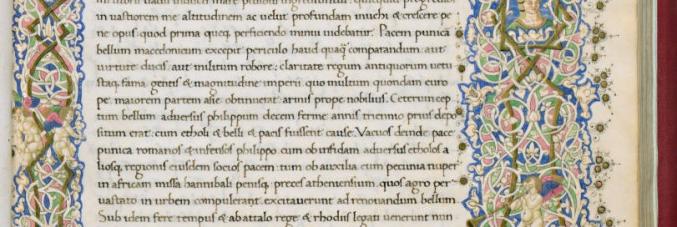 in vastiorem me altitudinem ac velut profundum inuehi & crescere pe
ne opus quod prima queq; perficiendo minui uidebatur. Pacem punica
bellum macedonicum excepit periculo haud quaq̃ comparandum aut
uirtute ducis aut militum robore: claritate regum antiquorum uetu
staq; fama gentis & magnitudine imperii quo multum quondam euro
pe maiorem partem asie obtinuerat armis prope nobilius. Ceterum cep
tum bellum aduersus philippum decem ferme annis triennio prius depo
situm erat: cum etholi & belli & pacis fuissent cause. Vacuos deinde pace
punica romanos & infensos philippo cum ob infidam aduersus etholos a
liosq; regionis eiusdem socios pacem: tum ob auxilia cum pecunia nuper
in africam missa hannibali penisq; preces atheniensium quos agro per
uastato in urbem compulerant excitauerunt ad renouandum bellum.
Sub idem fere tempus & ab attalo rege & rhodiis legati uenerunt nun